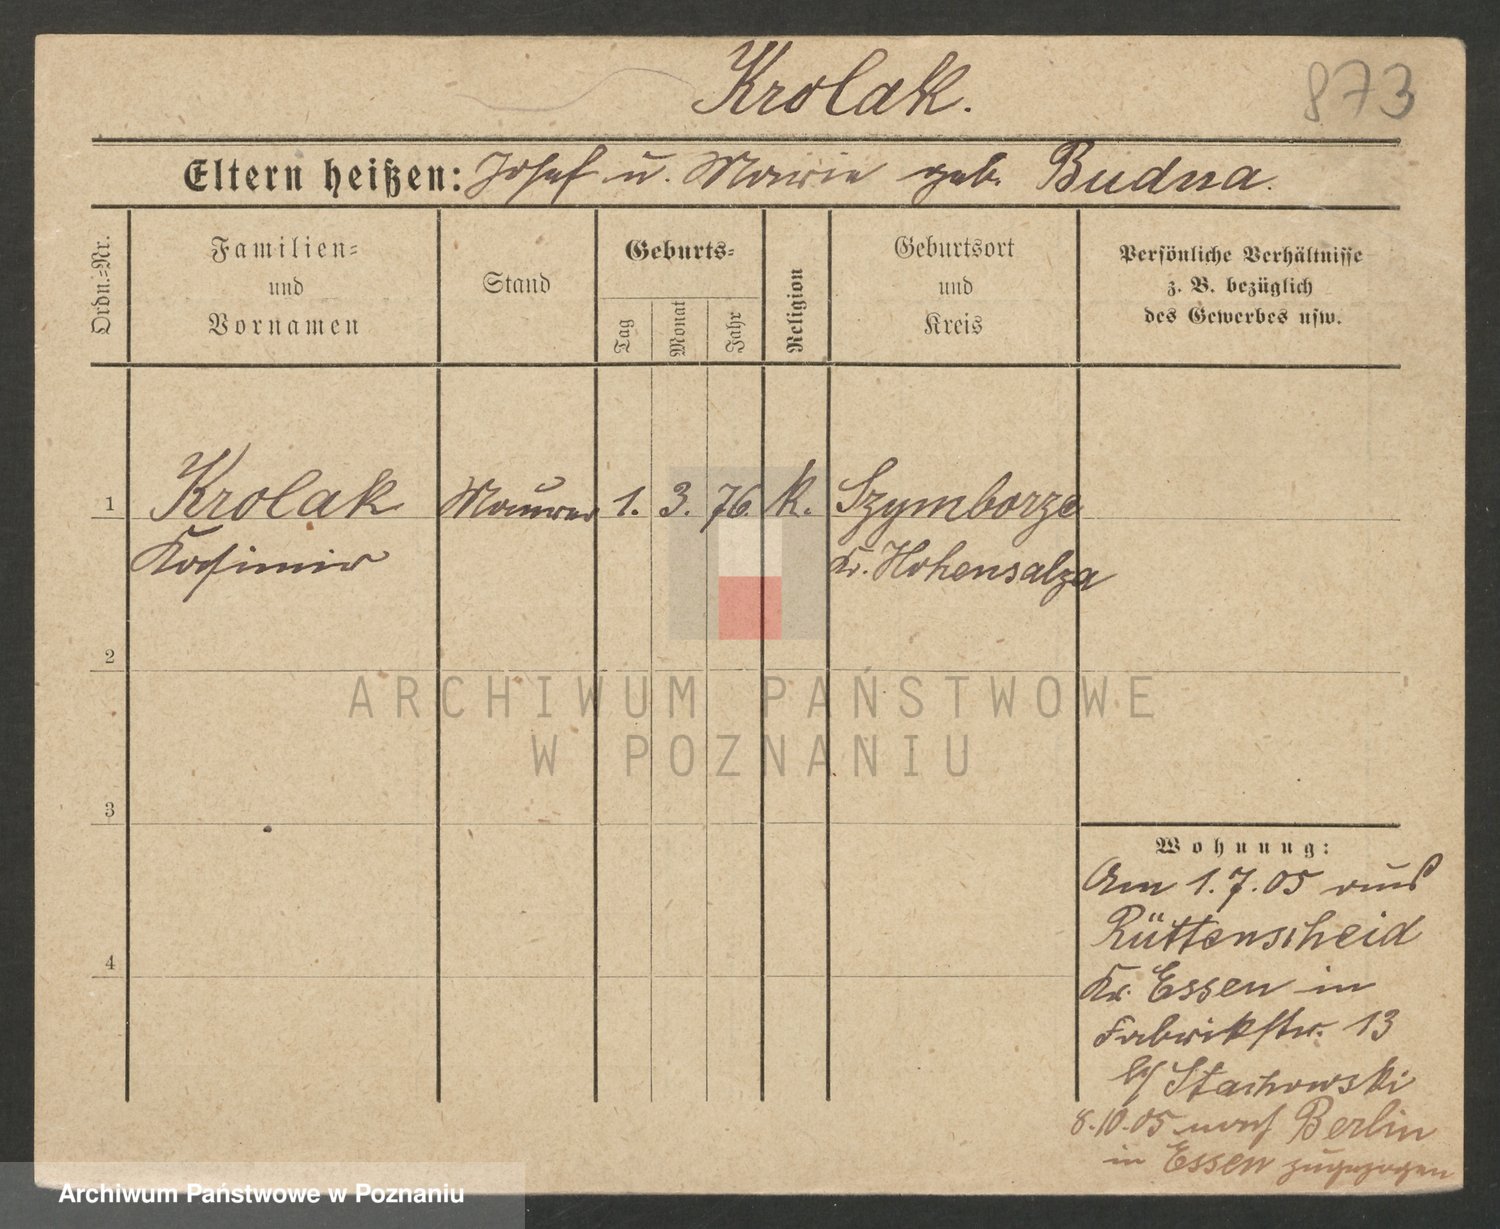 Krolak.
873
Eltern heißen: Josef u. Marie geb. Budna.
Ordn.-Nr.
Familien-
und
Vornamen
Stand
Geburts-
Tag
Monat
Jahr
Religion
Geburtsort
und
Kreis
Persönliche Verhältnisse
z. B. bezüglich
des Gewerbes usw.
1 Krolak Maurer 1. 3. 76. k. Szymborze
Kasimir Kr. Hohensalza
2
ARCHIWUM PAŃSTWOWE
W POZNANIU
3
Wohnung:
Am 1.7.05 aus
Rüttenscheid
4
Kr. Essen in
Fabrikstr. 13
b/ Stachowski
8.10.05 nach Berlin
in Essen zugezogen
Archiwum Państwowe w Poznaniu